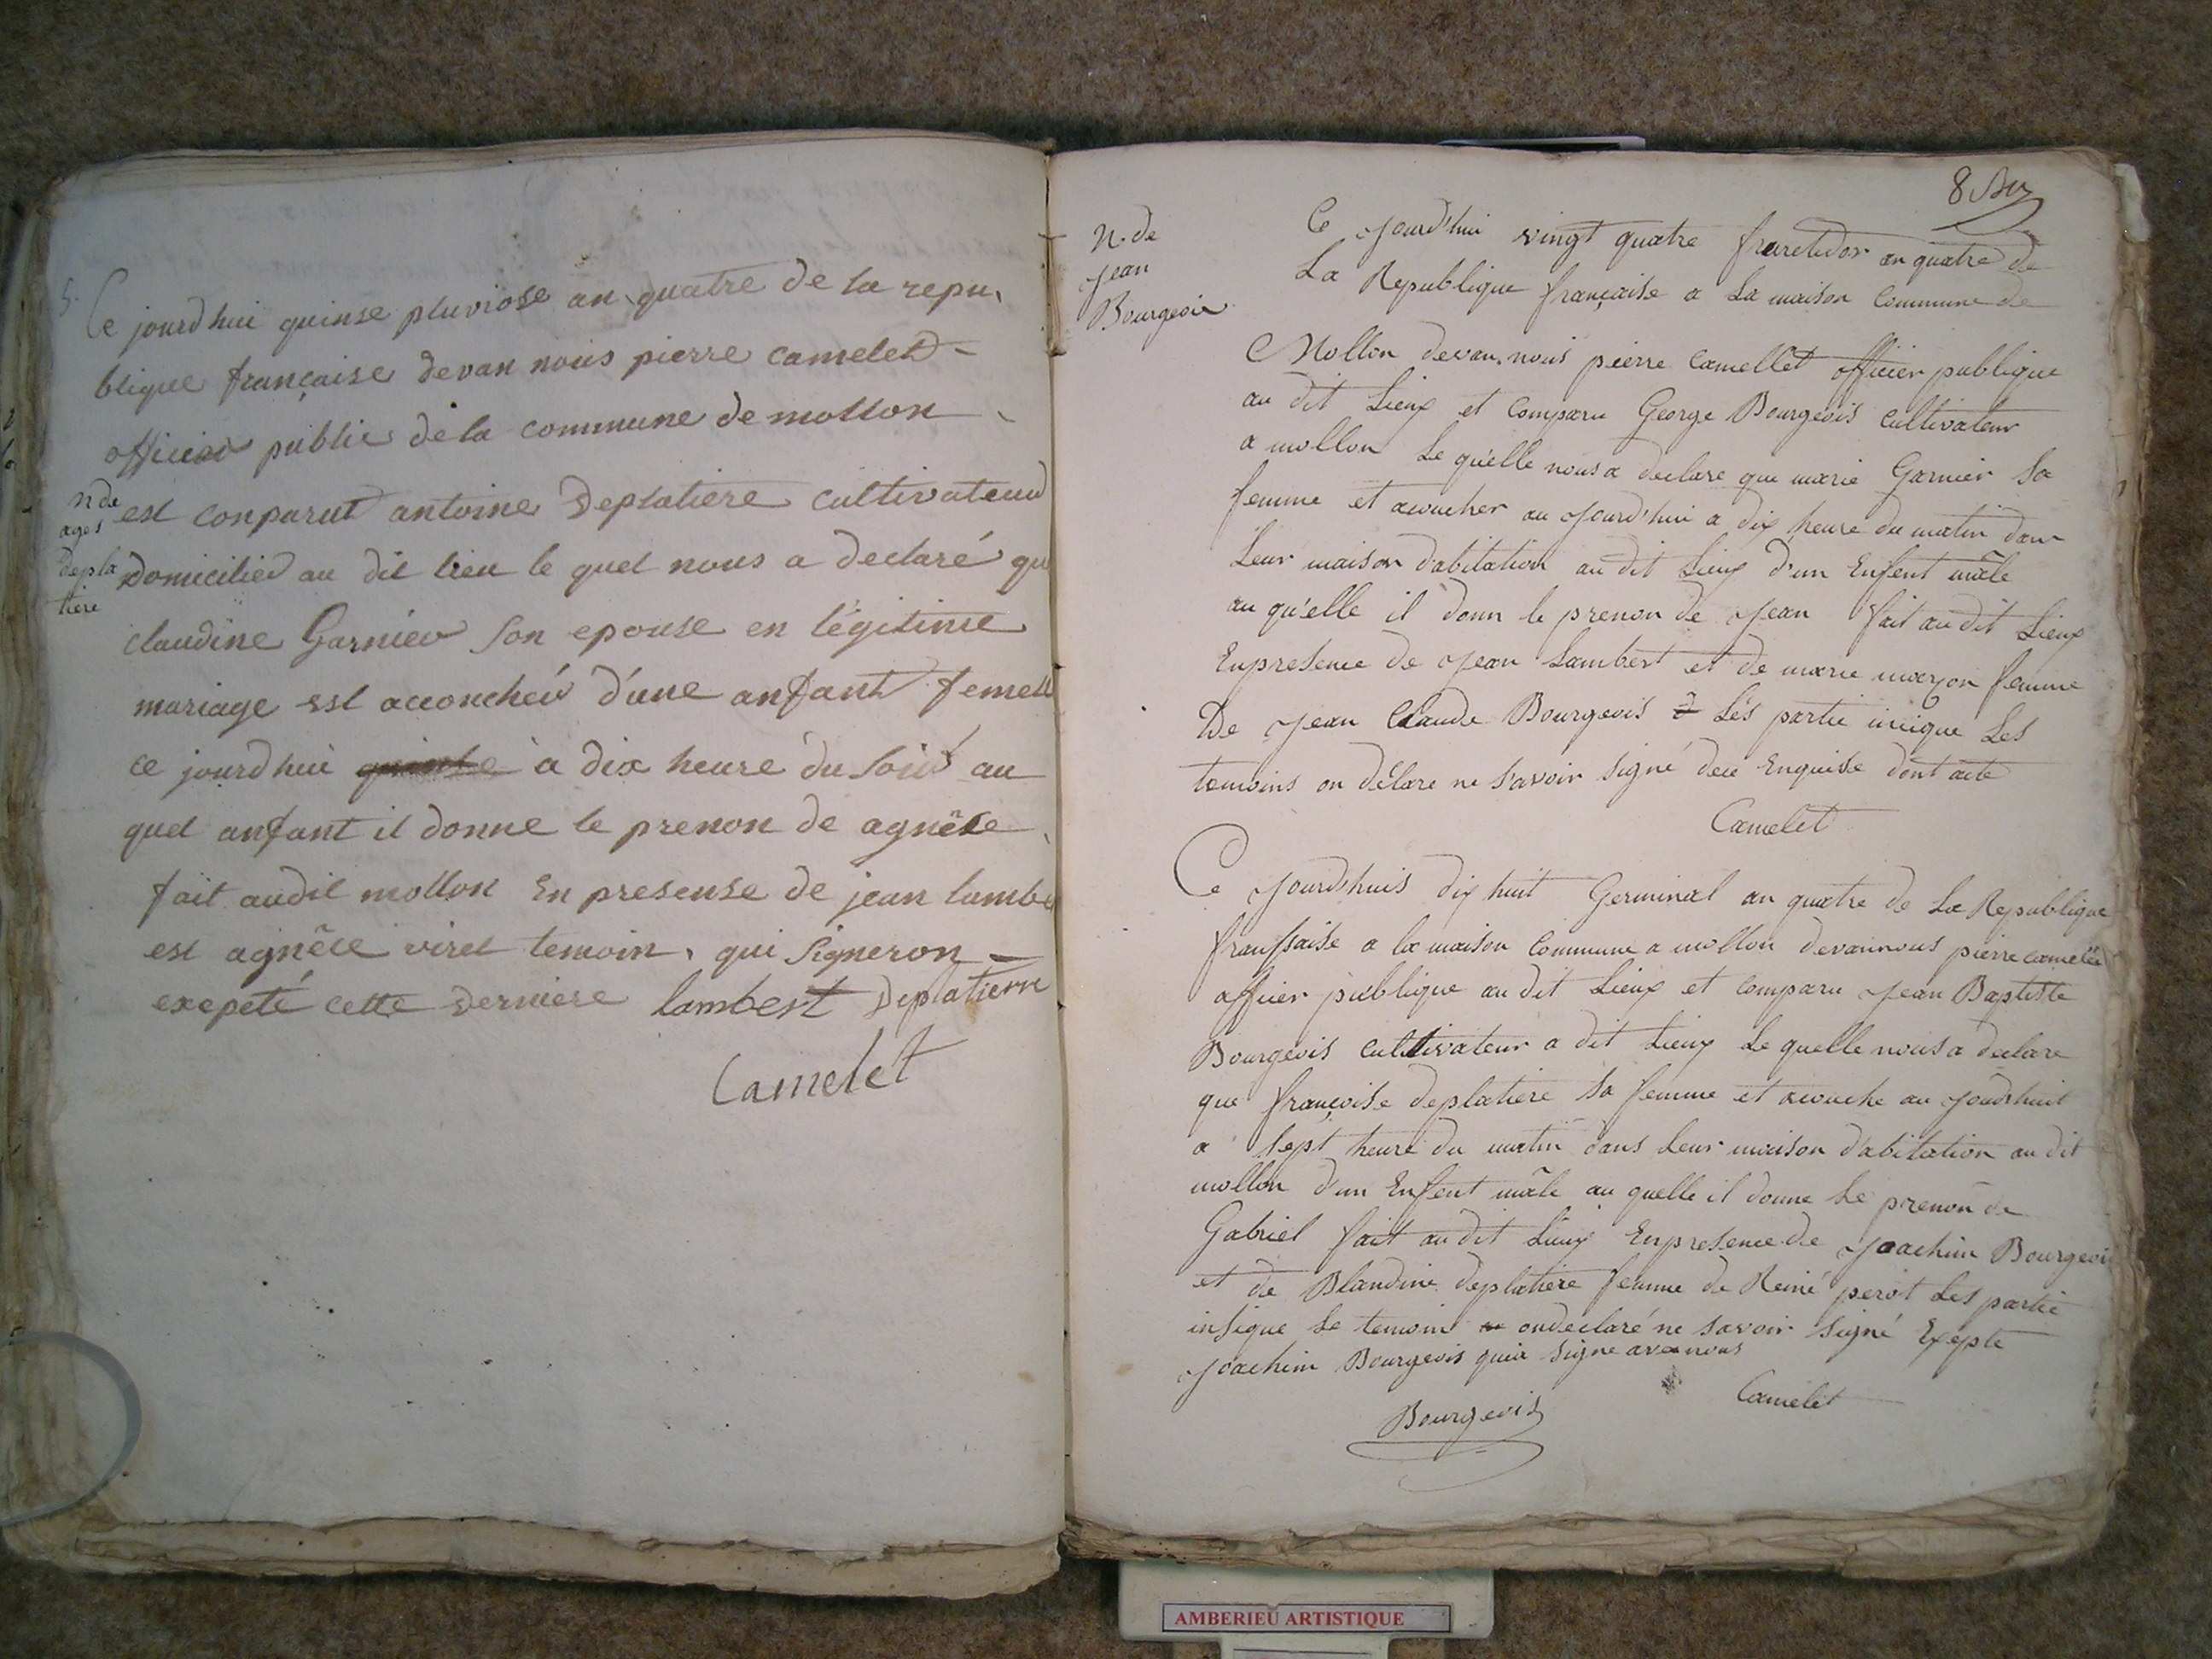 5.
Ce jourd hui quinse pluviose an quatre de la repu,
blique française devan nous pierre camelet
officier public de la commune de mollon
n de
ages
depla
tiere
est conparut antoine Deplatiere cultivateur
domicilié au dit lieu le quel nous a declaré qu
claudine Garnier son epouse en légitime
mariage est accouchéé d'une anfant femell
ce jourd hui à dix heure du soir au
quel anfant il donne le prenon de agnêce
fait audit mollon En presense de jean lambe
est agnêce viret temoin, qui signeron
exepeté cette derniere lambert Deplatierre
Camelet
8
N. de
Jean
Bourgeois
Ce jourd'hui vingt quatre fruretidor an quatre de
La Republique française a La maison Commune de
Mollon devan nous pierre Camellet officier publique
au dit Lieux et Comparu George Bourgeois Cultivateur
a mollon Le quelle nous a declare que marie Garnier Sa
femme et acoucher au jourd'hui a dix heure du matin dans
Leur maison d'abitation au dit Lieux d'un Enfent mâle
au qu'elle il donn le prenon de Jean fait au dit Lieux
Enpresence de Jean Lambert et de marie femme
De Jean Claude Bourgeois Lés partie Les
temoins on délare ne Savoir Signé Enquise dont acte
Camelet
Ce jourdshuis dix huit Germinal an quatre de La Republique
franssaise a la maison Commune a mollon devannous pierre camelét
officier publique au dit Lieux et Comparu Jean Baptiste
Bourgeois Cultivateur a dit Lieux Le quelle nous a declare
que françoise deplatiere Sa femme et acouche au jourdhuit
a Sept heure du matin dans Leur maison d'abitation au dit
mollon d'un Enfent mâle au quelle il donne Le prenon de
Gabriel fait au dit Lieux Enpresence de Joachim Bourgeois
et de Blandine deplatiere femme de Reiné perot Les partie
insique Le temoin ondeclaré ne Savoir Signé Exepte
Joachim Bourgeois quia Signe avec nous
Bourgeois
Camelet
AMBERIEU ARTISTIQUE